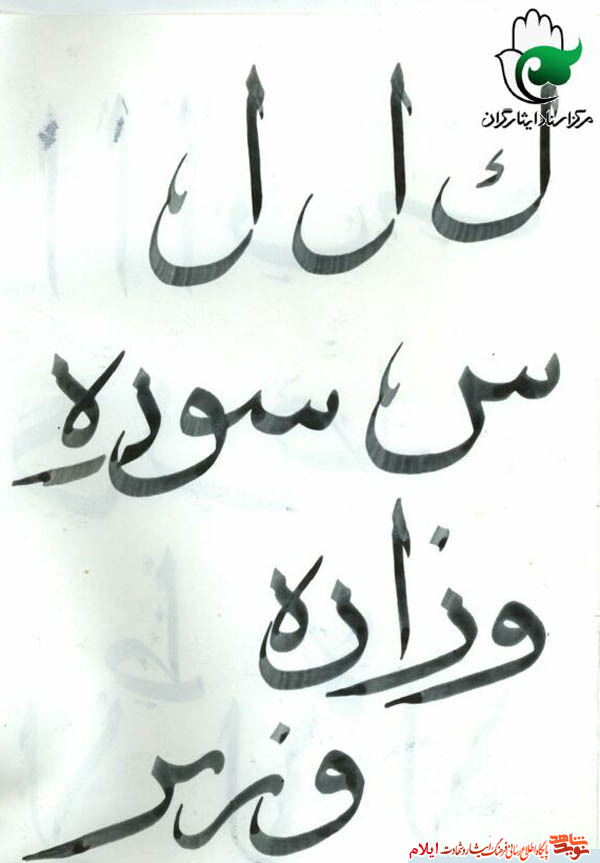 مرکز اسناد ایثارگران
ك ل ل
س سوره
وزاره
وزىر
نوید شاهد پایگاه اطلاع رسانی فرهنگ ایثار و شهادت ایلام